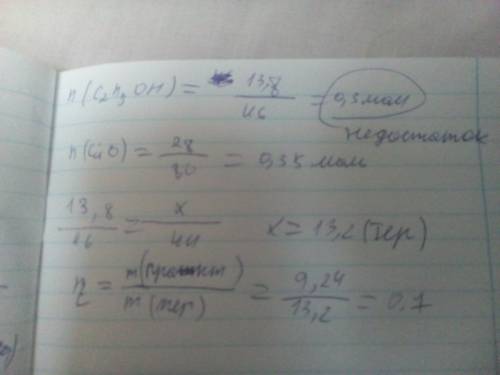 n(C₂H₅OH) = 13,8/46 = 0,3 мол
недостаток
n(CuO) = 28/80 = 0,35 мол
13,8/46 = x/44 x = 13,2 (тер)
η = m(практ)/m(тер) = 9,24/13,2 = 0.7